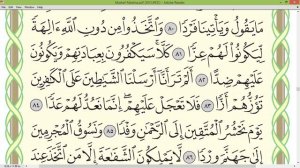 Mushaf Madinah.pdf (SECURED) - Adobe Reader
مَا يَقُولُ وَيَأْتِينَا فَرْدًا ٨٠ وَٱتَّخَذُوا۟ مِن دُونِ ٱللَّهِ ءَالِهَةً
لِّيَكُونُوا۟ لَهُمْ عِزًّا ٨١ كَلَّا سَيَكْفُرُونَ بِعِبَادَتِهِمْ وَيَكُونُونَ
عَلَيْهِمْ ضِدًّا ٨٢ أَلَمْ تَرَ أَنَّآ أَرْسَلْنَا ٱلشَّيَٰطِينَ عَلَى ٱلْكَٰفِرِينَ
تَؤُزُّهُمْ أَزًّا ٨٣ فَلَا تَعْجَلْ عَلَيْهِمْ إِنَّمَا نَعُدُّ لَهُمْ عَدًّا ٨٤
يَوْمَ نَحْشُرُ ٱلْمُتَّقِينَ إِلَى ٱلرَّحْمَٰنِ وَفْدًا ٨٥ وَنَسُوقُ ٱلْمُجْرِمِينَ
إِلَىٰ جَهَنَّمَ وِرْدًا ٨٦ لَّا يَمْلِكُونَ ٱلشَّفَٰعَةَ إِلَّا مَنِ ٱتَّخَذَ عِندَ